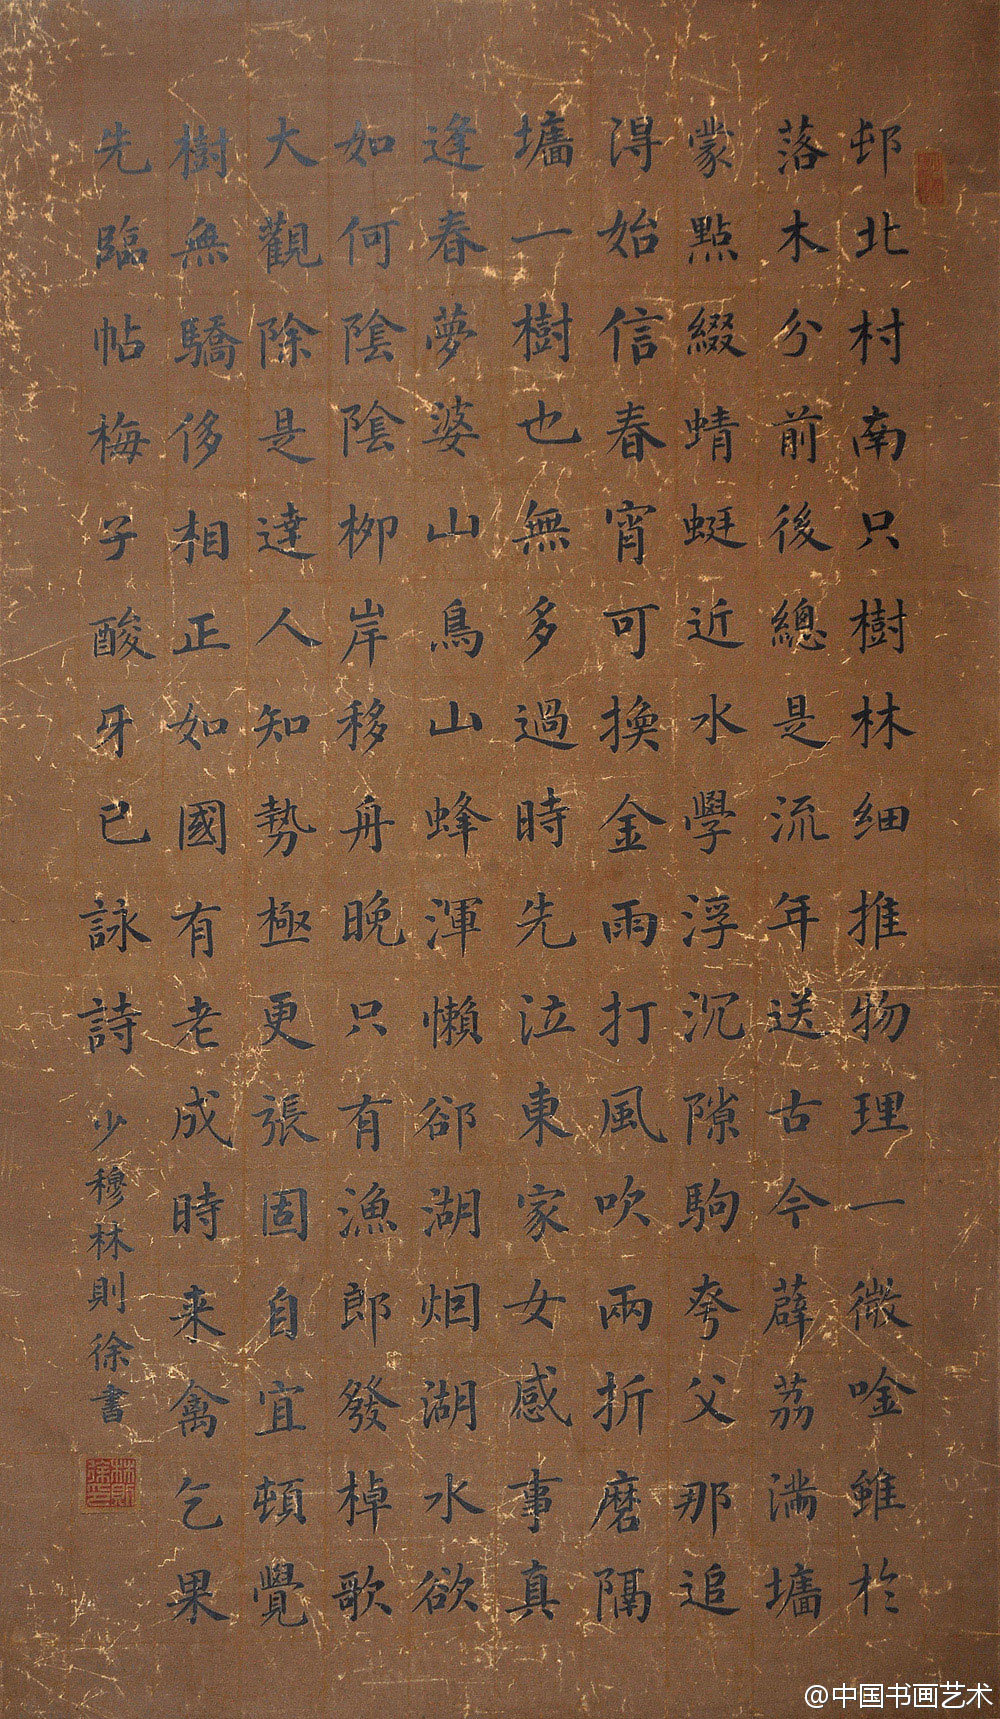 邨北村南只樹林細推物理一微唫雖於
落木分前後總是流年送古今薜荔滿墻
蒙點綴蜻蜓近水學浮沉隙駒夸父那追
得始信春宵可換金雨打風吹兩折磨隔
墻一樹也無多過時先泣東家女感事真
逢春夢婆山鳥山蜂渾懶郤湖烟湖水欲
如何陰陰柳岸移舟晚只有漁郎發棹歌
大觀除是達人知勢極更張固自宜頓覺
樹無驕侈相正如國有老成時来禽乞果
先臨帖梅子酸牙已詠詩
少穆林則徐書
林則徐印
@中国书画艺术